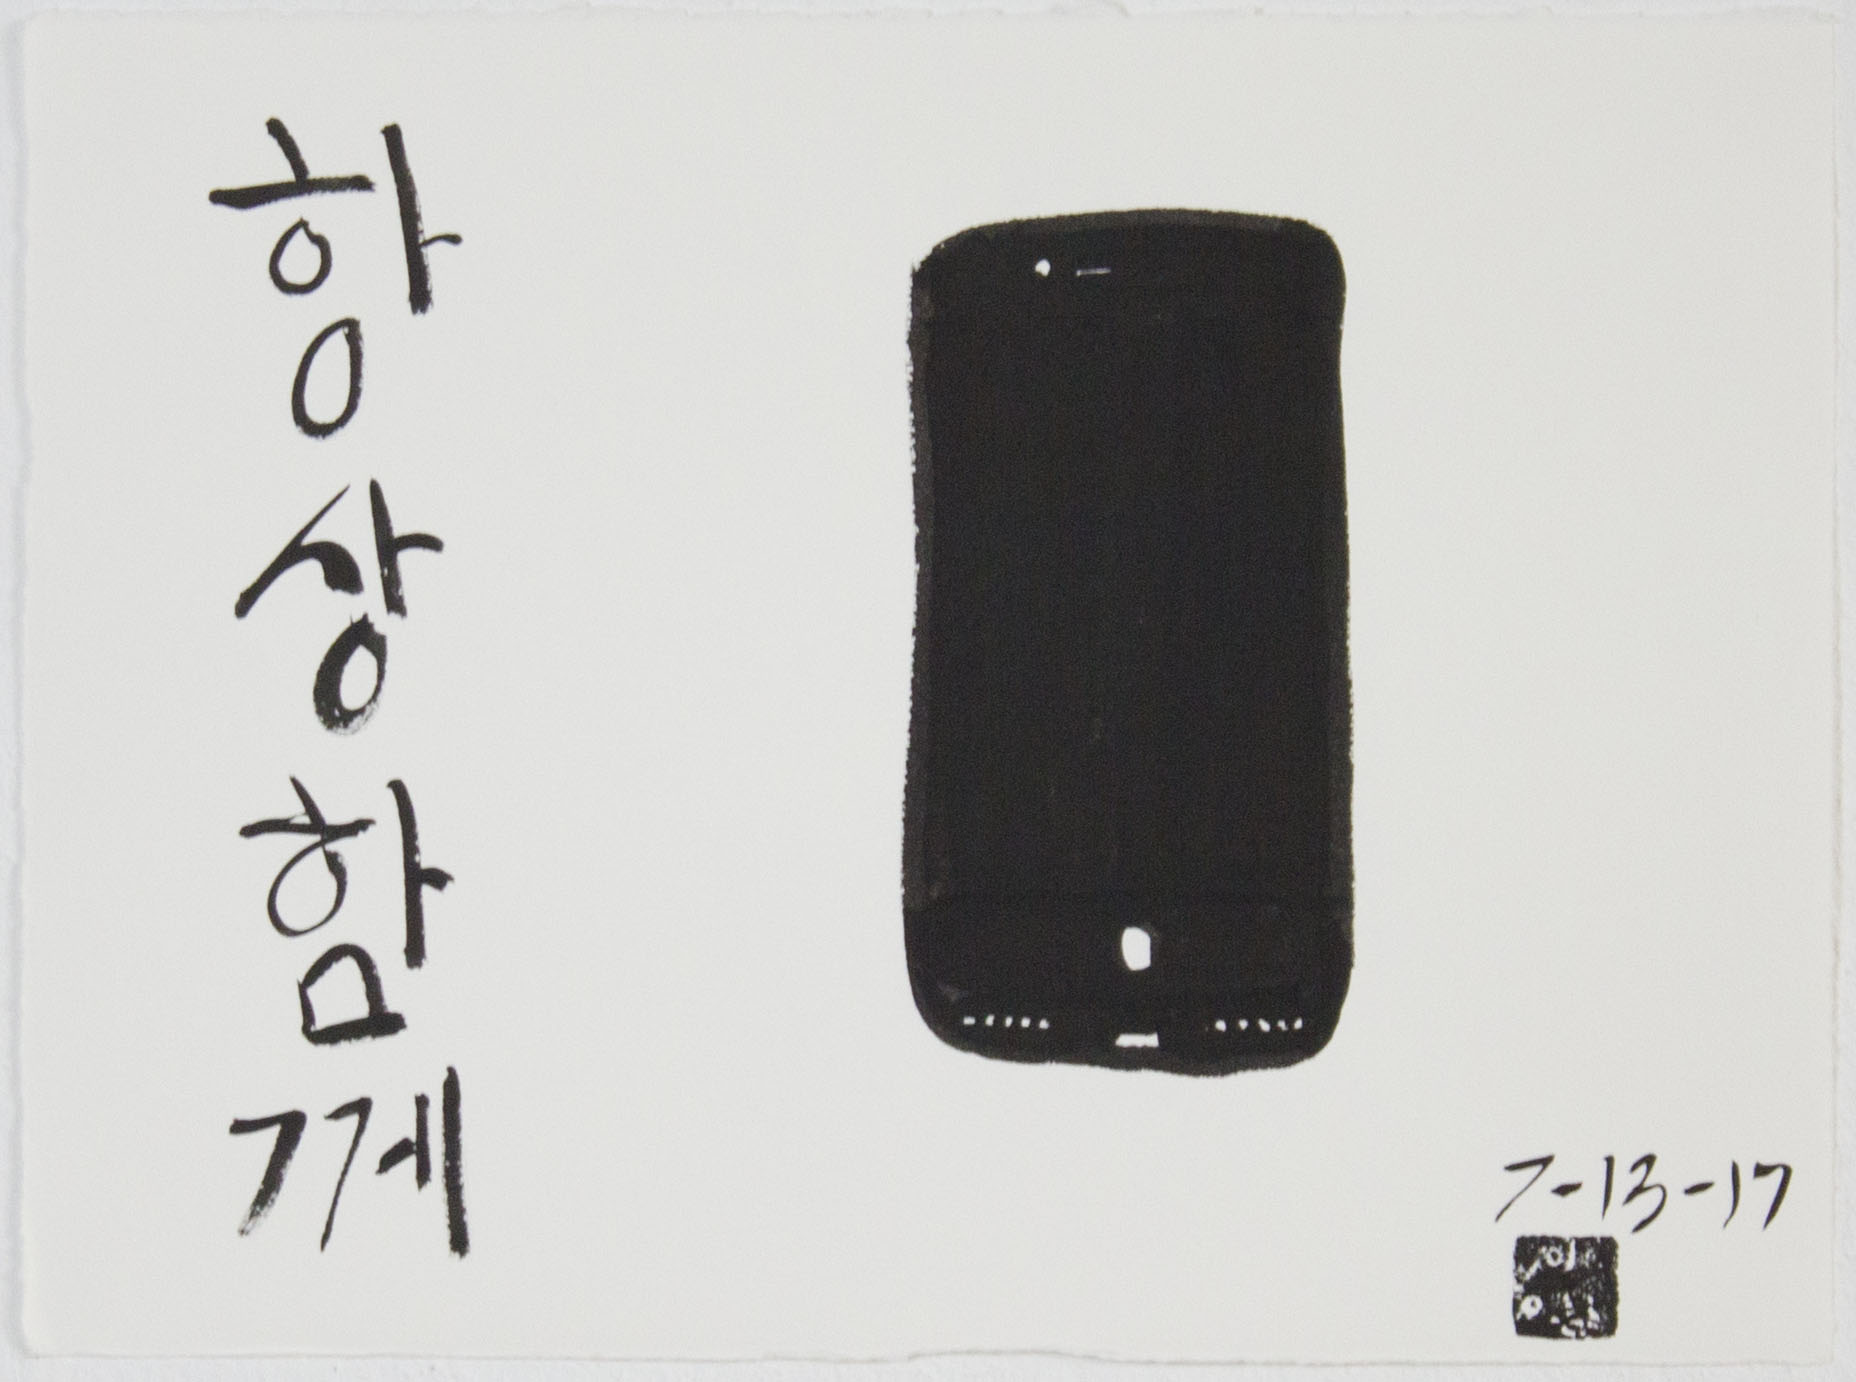 항상함께
7-13-17